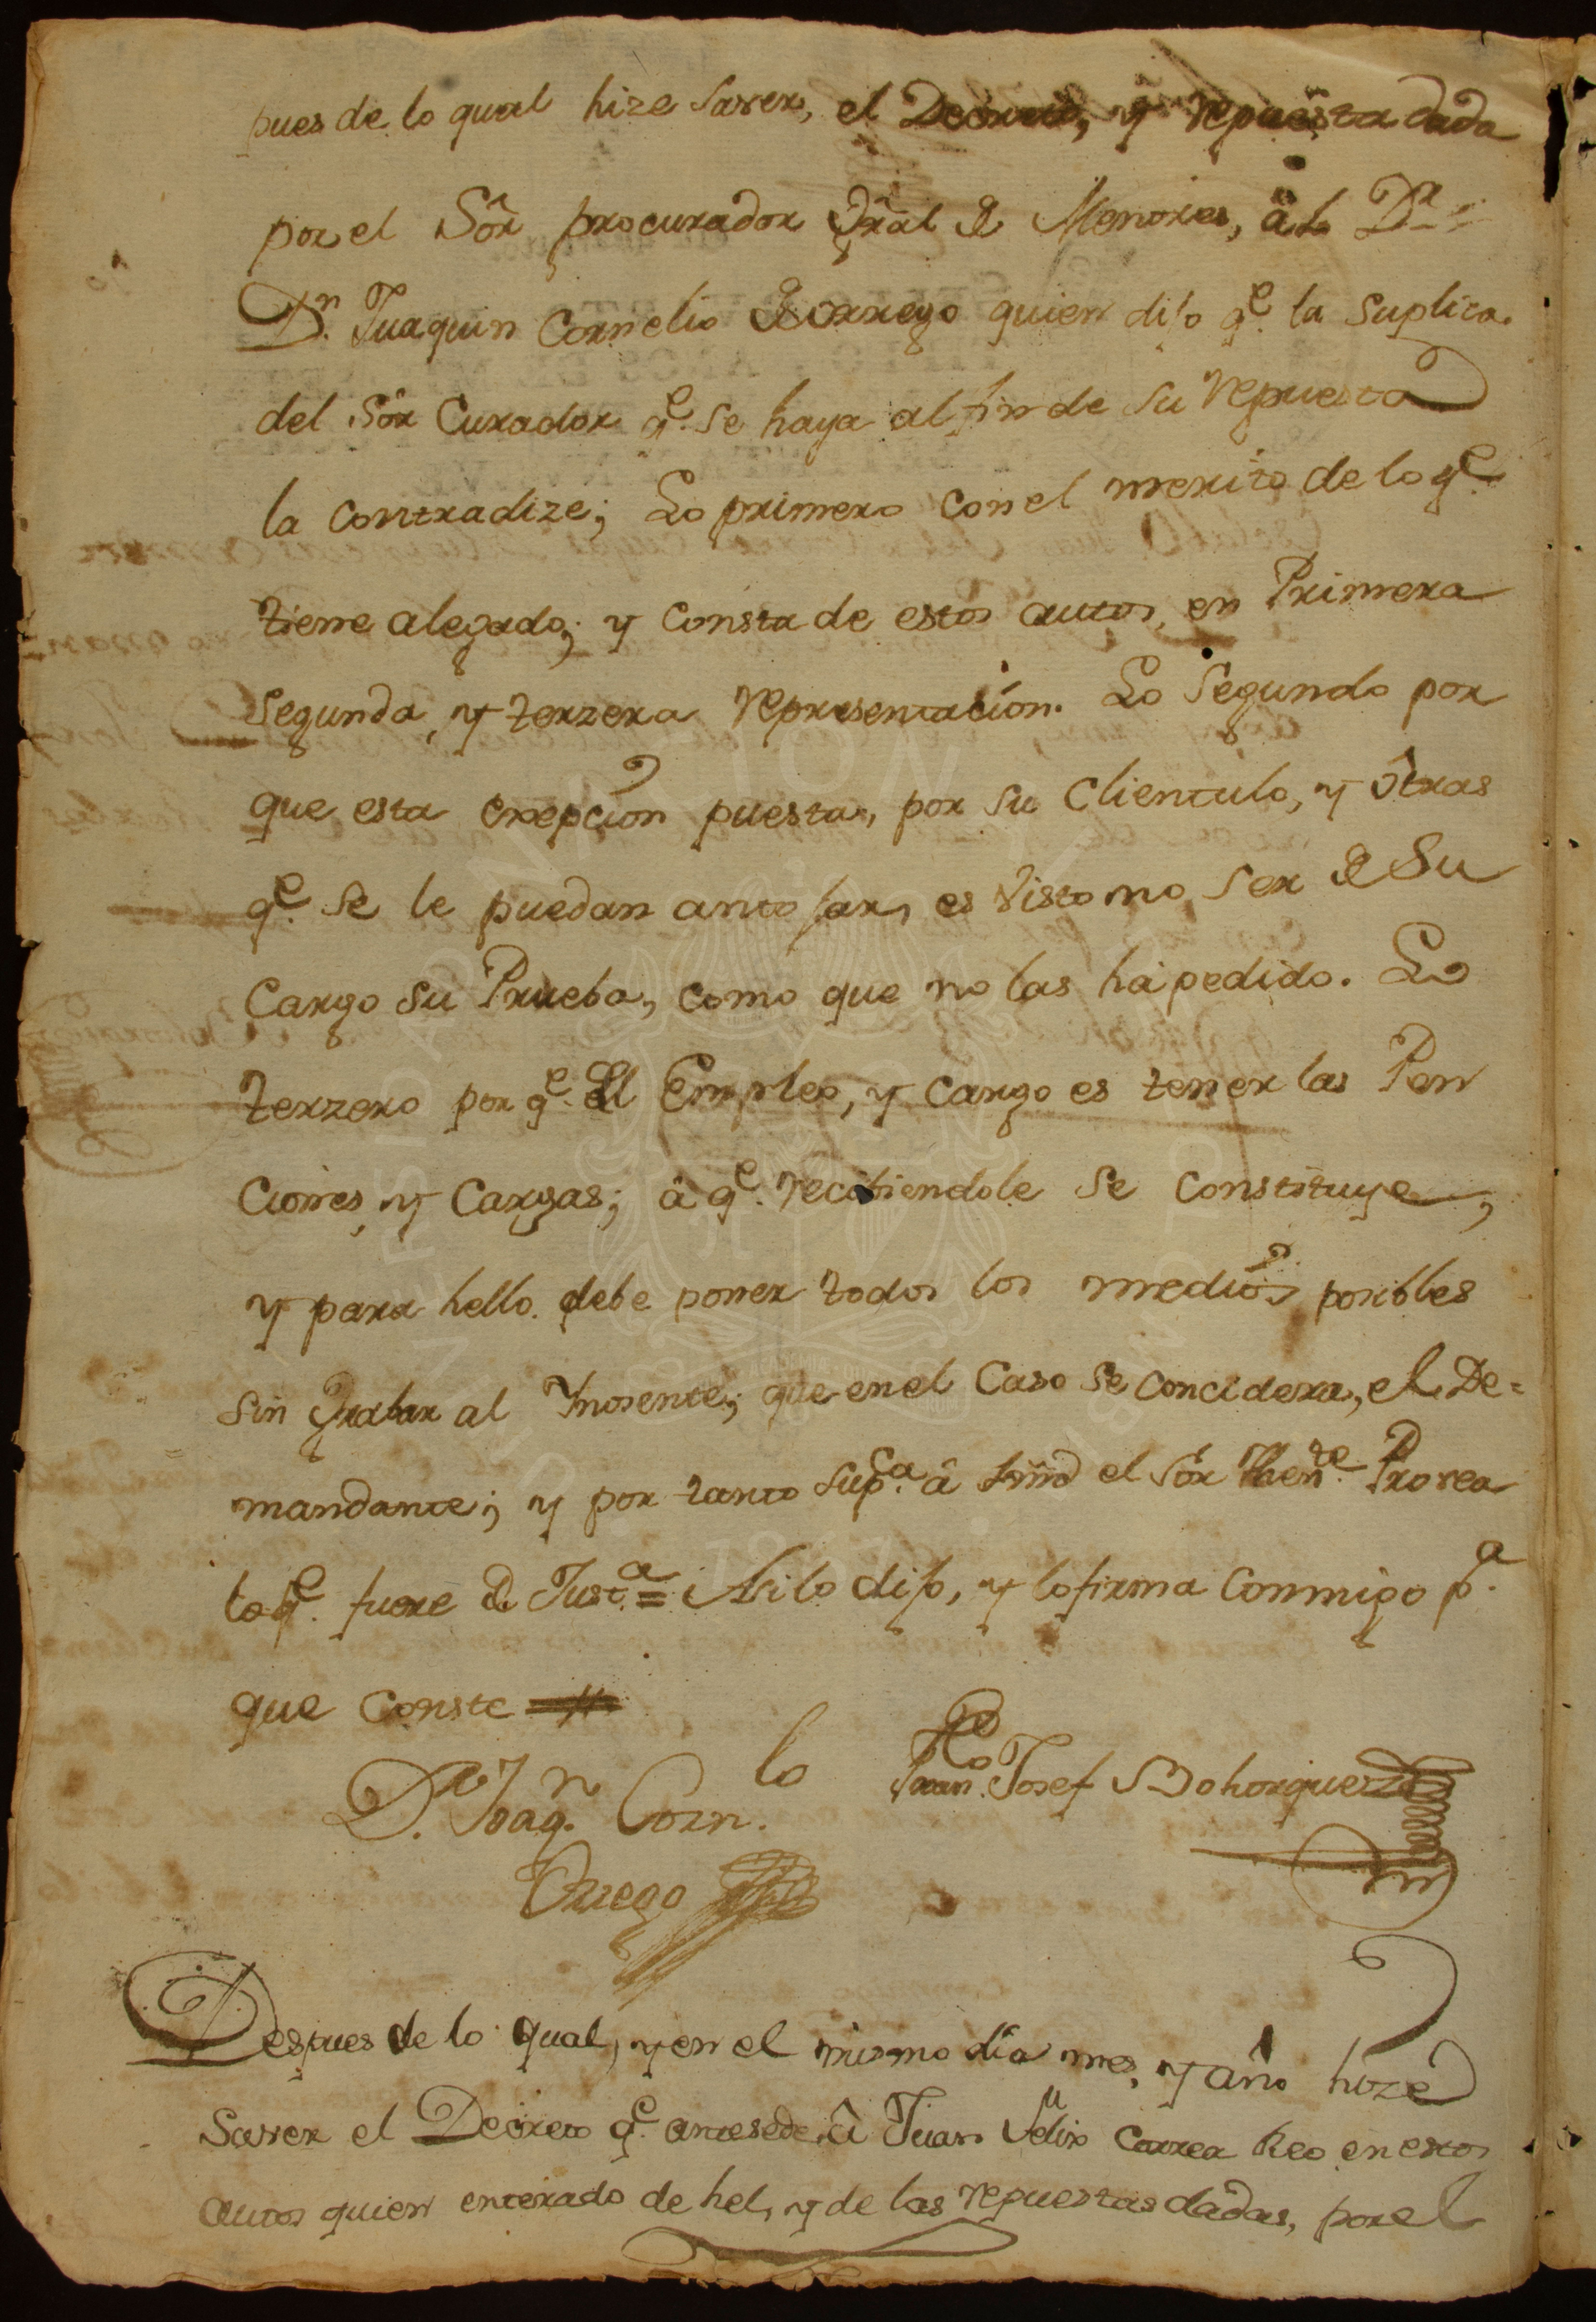 pues de lo qual hize saver, el Decreto, y repuesta dada
por el Sôr procurador Gr̃al de Menores, â el Dr
Dn. Juaquin Cornelio Borrego quien dijo qe. la suplica.
del Sôr Curador qe. se haya al fin de su repuesta
la contradize; Lo primero con el merito de lo qe.
tiene alegado; y consta de estos autos, en Primera
segunda, y terzera representacion. Lo segundo por
que esta exepcion puesta, por su Clientulo, y ôtras
qe. se le puedan antojar, es visto no ser de su
Cargo su Prueba, como que no las há pedido. Lo
terzero por qe. el Empleo, y cargo es tener las Pen
ciones, y Cargas; â qe. recibiendole se constituye,
y para hello debe poner todos los medios posibles
sin grabar al Ynosente; que en el Caso se concidera, el De=
mandante; y por tanto supca. â su md el sôr Thente. Provea
lo qe. fuere de Justa. = Asi lo dijo, y lo firma conmigo pa.
que conste =
Dr. Joaqn. Corn.lo
Fran.co Josef Bohorquez
Orrego
Despues de lo qual, y en el mismo dia mes, y año hize
saver el Decreto qe. antesede, â Juan Felix Correa Reo en estos
autos quien enterado de hel, y de las repuestas dadas, por el